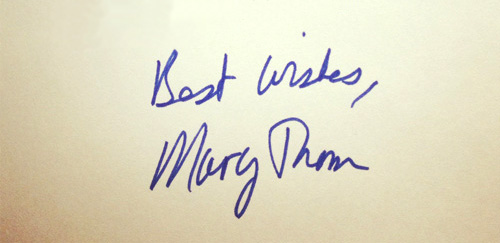 Best Wishes,
Mary Thom